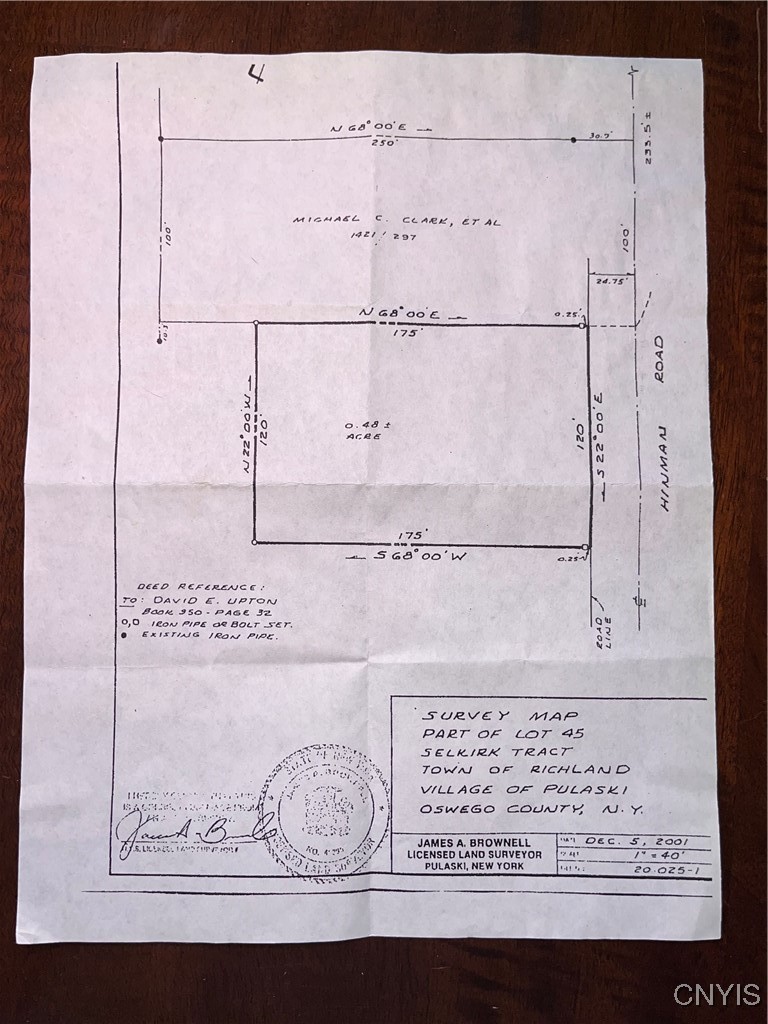 4
N 68° 00' E
250'
30.7'
233.5' ±
MICHAEL C. CLARK, ET AL
1421 / 297
100'
100'
24.75'
10.3'
N 68° 00' E
175'
0.25'
HINMAN ROAD
N 22° 00' W
120'
0.48 ±
ACRE
120'
S 22° 00' E
175'
S 68° 00' W
0.25'
ROAD
LINE
DEED REFERENCE:
TO: DAVID E. UPTON
BOOK 350 - PAGE 32
O,O IRON PIPE OR BOLT SET.
● EXISTING IRON PIPE.
SURVEY MAP
PART OF LOT 45
SELKIRK TRACT
TOWN OF RICHLAND
VILLAGE OF PULASKI
OSWEGO COUNTY, N.Y.
JAMES A. BROWNELL
LICENSED LAND SURVEYOR
PULASKI, NEW YORK
DEC. 5, 2001
1" = 40'
20.025-1
STATE OF NEW
LAND SURVEYOR
CNYIS